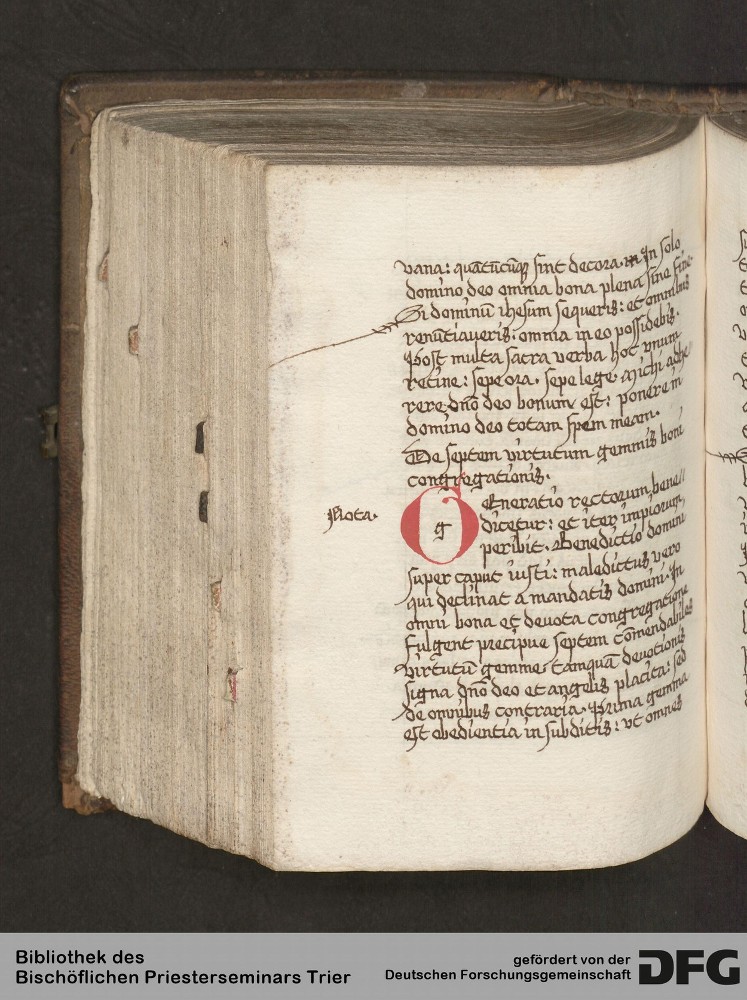 vana: quātūcūqꝫ sint decora. In solo
domino deo omnia bona plena sine fine.
Si dominū ihesum sequeris: et omnibus
renūtiaveris. omnia in eo possidebis.
Post multa sacra verba hoc unum
retine: sepe ora. sepe lege. Michi adhe
rere dño deo bonum est: ponere in
domino deo totam spem meam.
De septem virtutum gemmis boni
congregationis.
Nota.
GEneratio rectorum bene//
g
dicetur: et iter impiorum
peribit. Benedictio domini
super caput iusti: maledictus vero
qui declinat a mandatis domini. In
omni bona et devota congregatione
fulgent precipue septem cōmendabiles
virtutū gemme. tamquā devotionis
signa dño deo et angelis placita: sed
de omnibus contraria. Prima gemma
est obedientia in subditis: ut omnes
Bibliothek des
Bischöflichen Priesterseminars Trier
gefördert von der
Deutschen Forschungsgemeinschaft
DFG